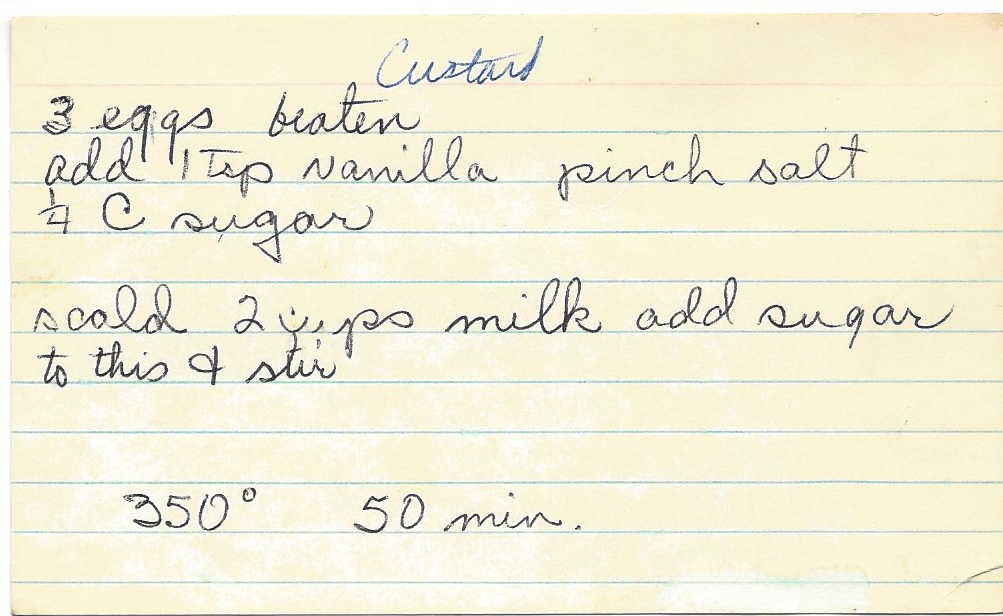 Custard
3 eggs beaten
add 1 Tsp vanilla pinch salt
1/4 C sugar
scald 2 cups milk add sugar
to this & stir
350° 50 min.